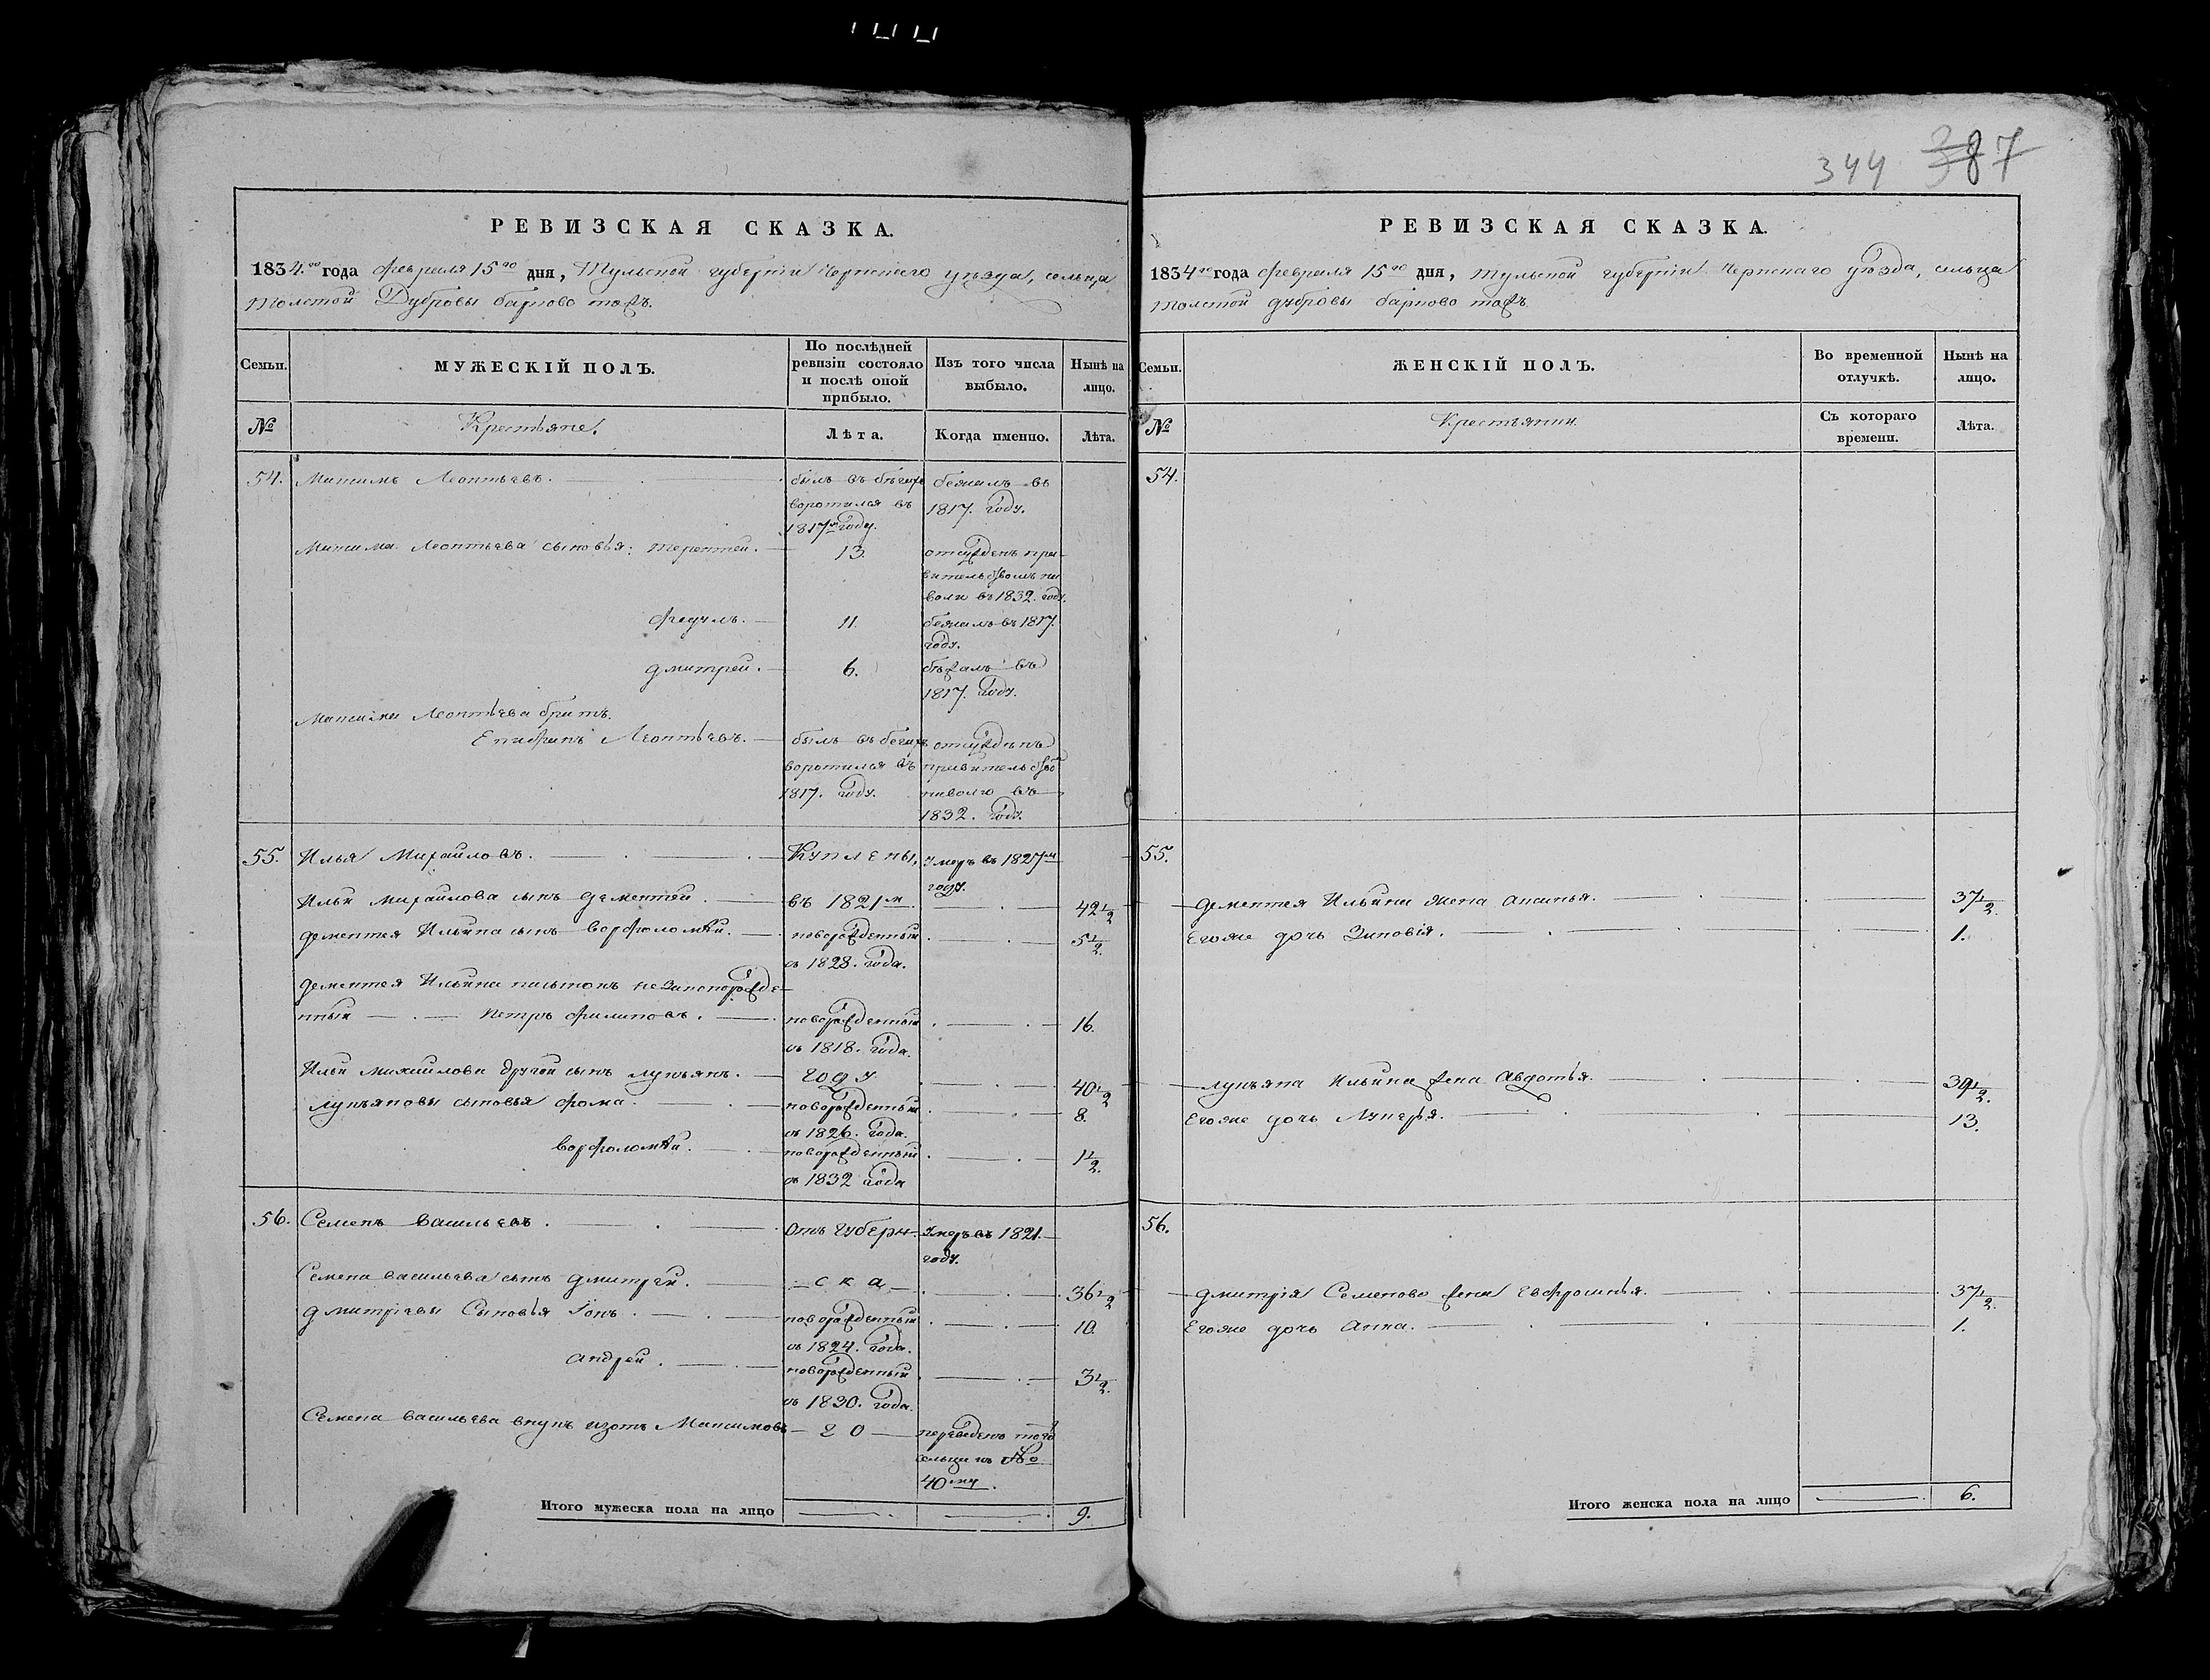 344 387
РЕВИЗСКАЯ СКАЗКА.
1834.го года февраля 15го дня, Тульской губернiи Чернскаго уѣзда, сельца
Толстой Дубровы барково тожъ.
Семьи.
МУЖЕСКІЙ ПОЛЪ.
По послѣдней
ревизіи состояло
и послѣ оной
прибыло.
Изъ того числа
выбыло.
Нынѣ на
лицо.
№
Крестьяне.
Лѣта.
Когда именно.
Лѣта.
54. Максимъ Леонтьевъ. былъ въ бѣгахъ бежалъ въ
воротился въ 1817. году.
1817м году.
Максима Леонтьева сыновья: терентей. 13. отсужденъ пра-
вительствомъ на
волю въ 1832. году.
федулъ. 11. бежалъ въ 1817.
году.
дмитрей. 6. бѣжалъ въ
1817. году.
Максима Леонтьева братъ.
Епифанъ Леонтьевъ. былъ въ бегахъ отсужденъ
воротился въ правительство
1817. году. наволю въ
1832. году.
55. Илья Михайловъ. Куплены, умеръ въ 1827м
году.
Ильи Михайлова сынъ дементей. въ 1821м. 42½
дементея Ильина сынъ ворфоломѣй. новорожденный 5½.
съ 1828. года.
дементея Ильина пасынокъ незаконорожде-
нный Петръ филиповъ. новорожденный 16.
съ 1818. года.
Ильи михайлова другой сынъ лукьянъ. году. 40½
лукьяновы сыновья фома. новорожденный 8.
съ 1826. года.
ворфоломѣй. новорожденный 1½.
съ 1832 года
56. Семенъ васильевъ. отъ губерн- умеръ въ 1821.
году.
Семена васильева сынъ дмитрей. ска 36½
дмитрiевы Сыновья Iонъ. новорожденный 10.
съ 1824. года.
андрей. новорожденный 3½.
съ 1830. года.
Семена васильева внукъ изотъ Максимовъ 20 переведенъ тогоже
сельца къ №
40му.
Итого мужеска пола на лицо 9.
РЕВИЗСКАЯ СКАЗКА.
1834го года февраля 15го дня, тульской губернiи Чернскаго уѣзда, сельца
толстой дубровы барково тожъ
Семьи.
ЖЕНСКІЙ ПОЛЪ.
Во временной
отлучкѣ.
Нынѣ на
лицо.
№
Крестьянки.
Съ котораго
времени.
Лѣта.
54.
55.
дементея Ильина жена Аксинья. 37½.
Егоже дочь Зиновiя. 1.
лукьяна Ильина жена Авдотья. 39½.
Егоже дочь Лукерья. 13.
56.
дмитрiя Семенова жена Евфросинья. 37½.
Егоже дочь Анна. 1.
Итого женска пола на лицо 6.